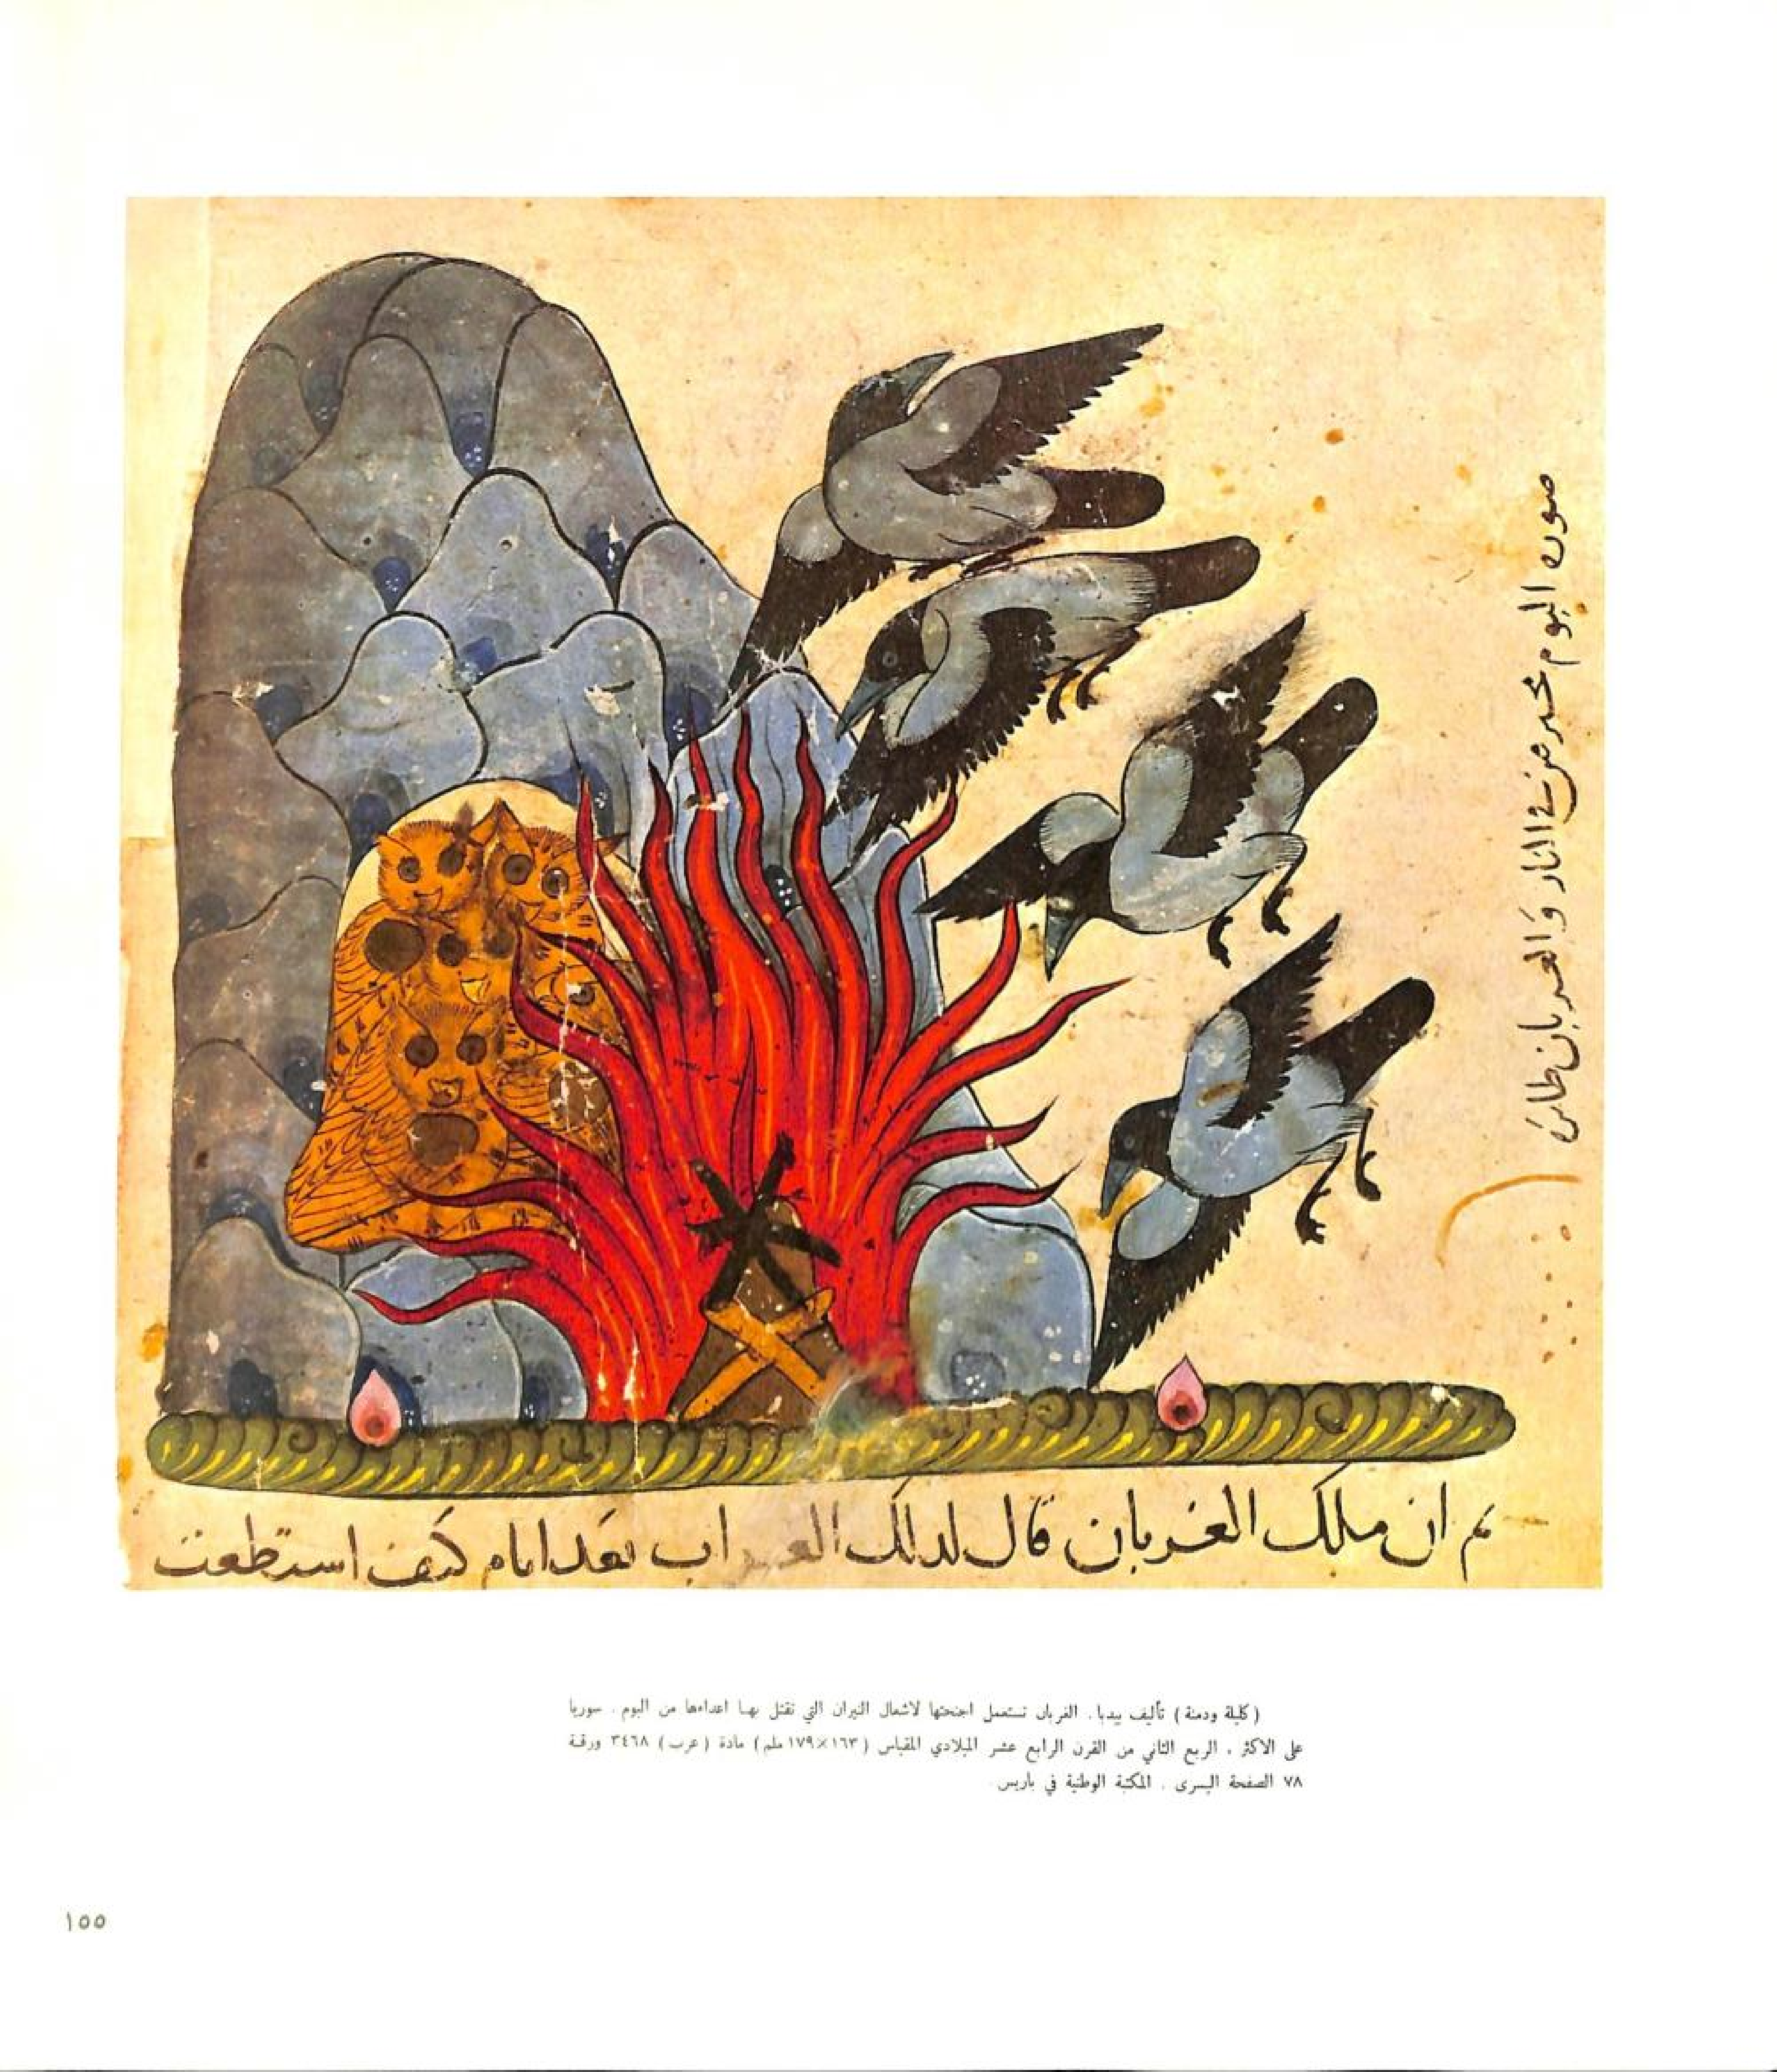 صورة البوم محترقين في النار والغربان طائرة
ثم ان ملك الغربان قال لذلك الغراب بعد ايام كيف استطعت
(كليلة ودمنة) تأليف بيدبا. الغربان تستعمل اجنحتها لاشعال النيران التي تقتل بها اعداءها من البوم. سوريا
على الاكثر. الربع الثاني من القرن الرابع عشر الميلادي المقياس (١٦٣×١٧٩ ملم) مادة (عرب) ٣٤٦٨ ورقة
٧٨ الصفحة اليسرى. المكتبة الوطنية في باريس.
١٥٥